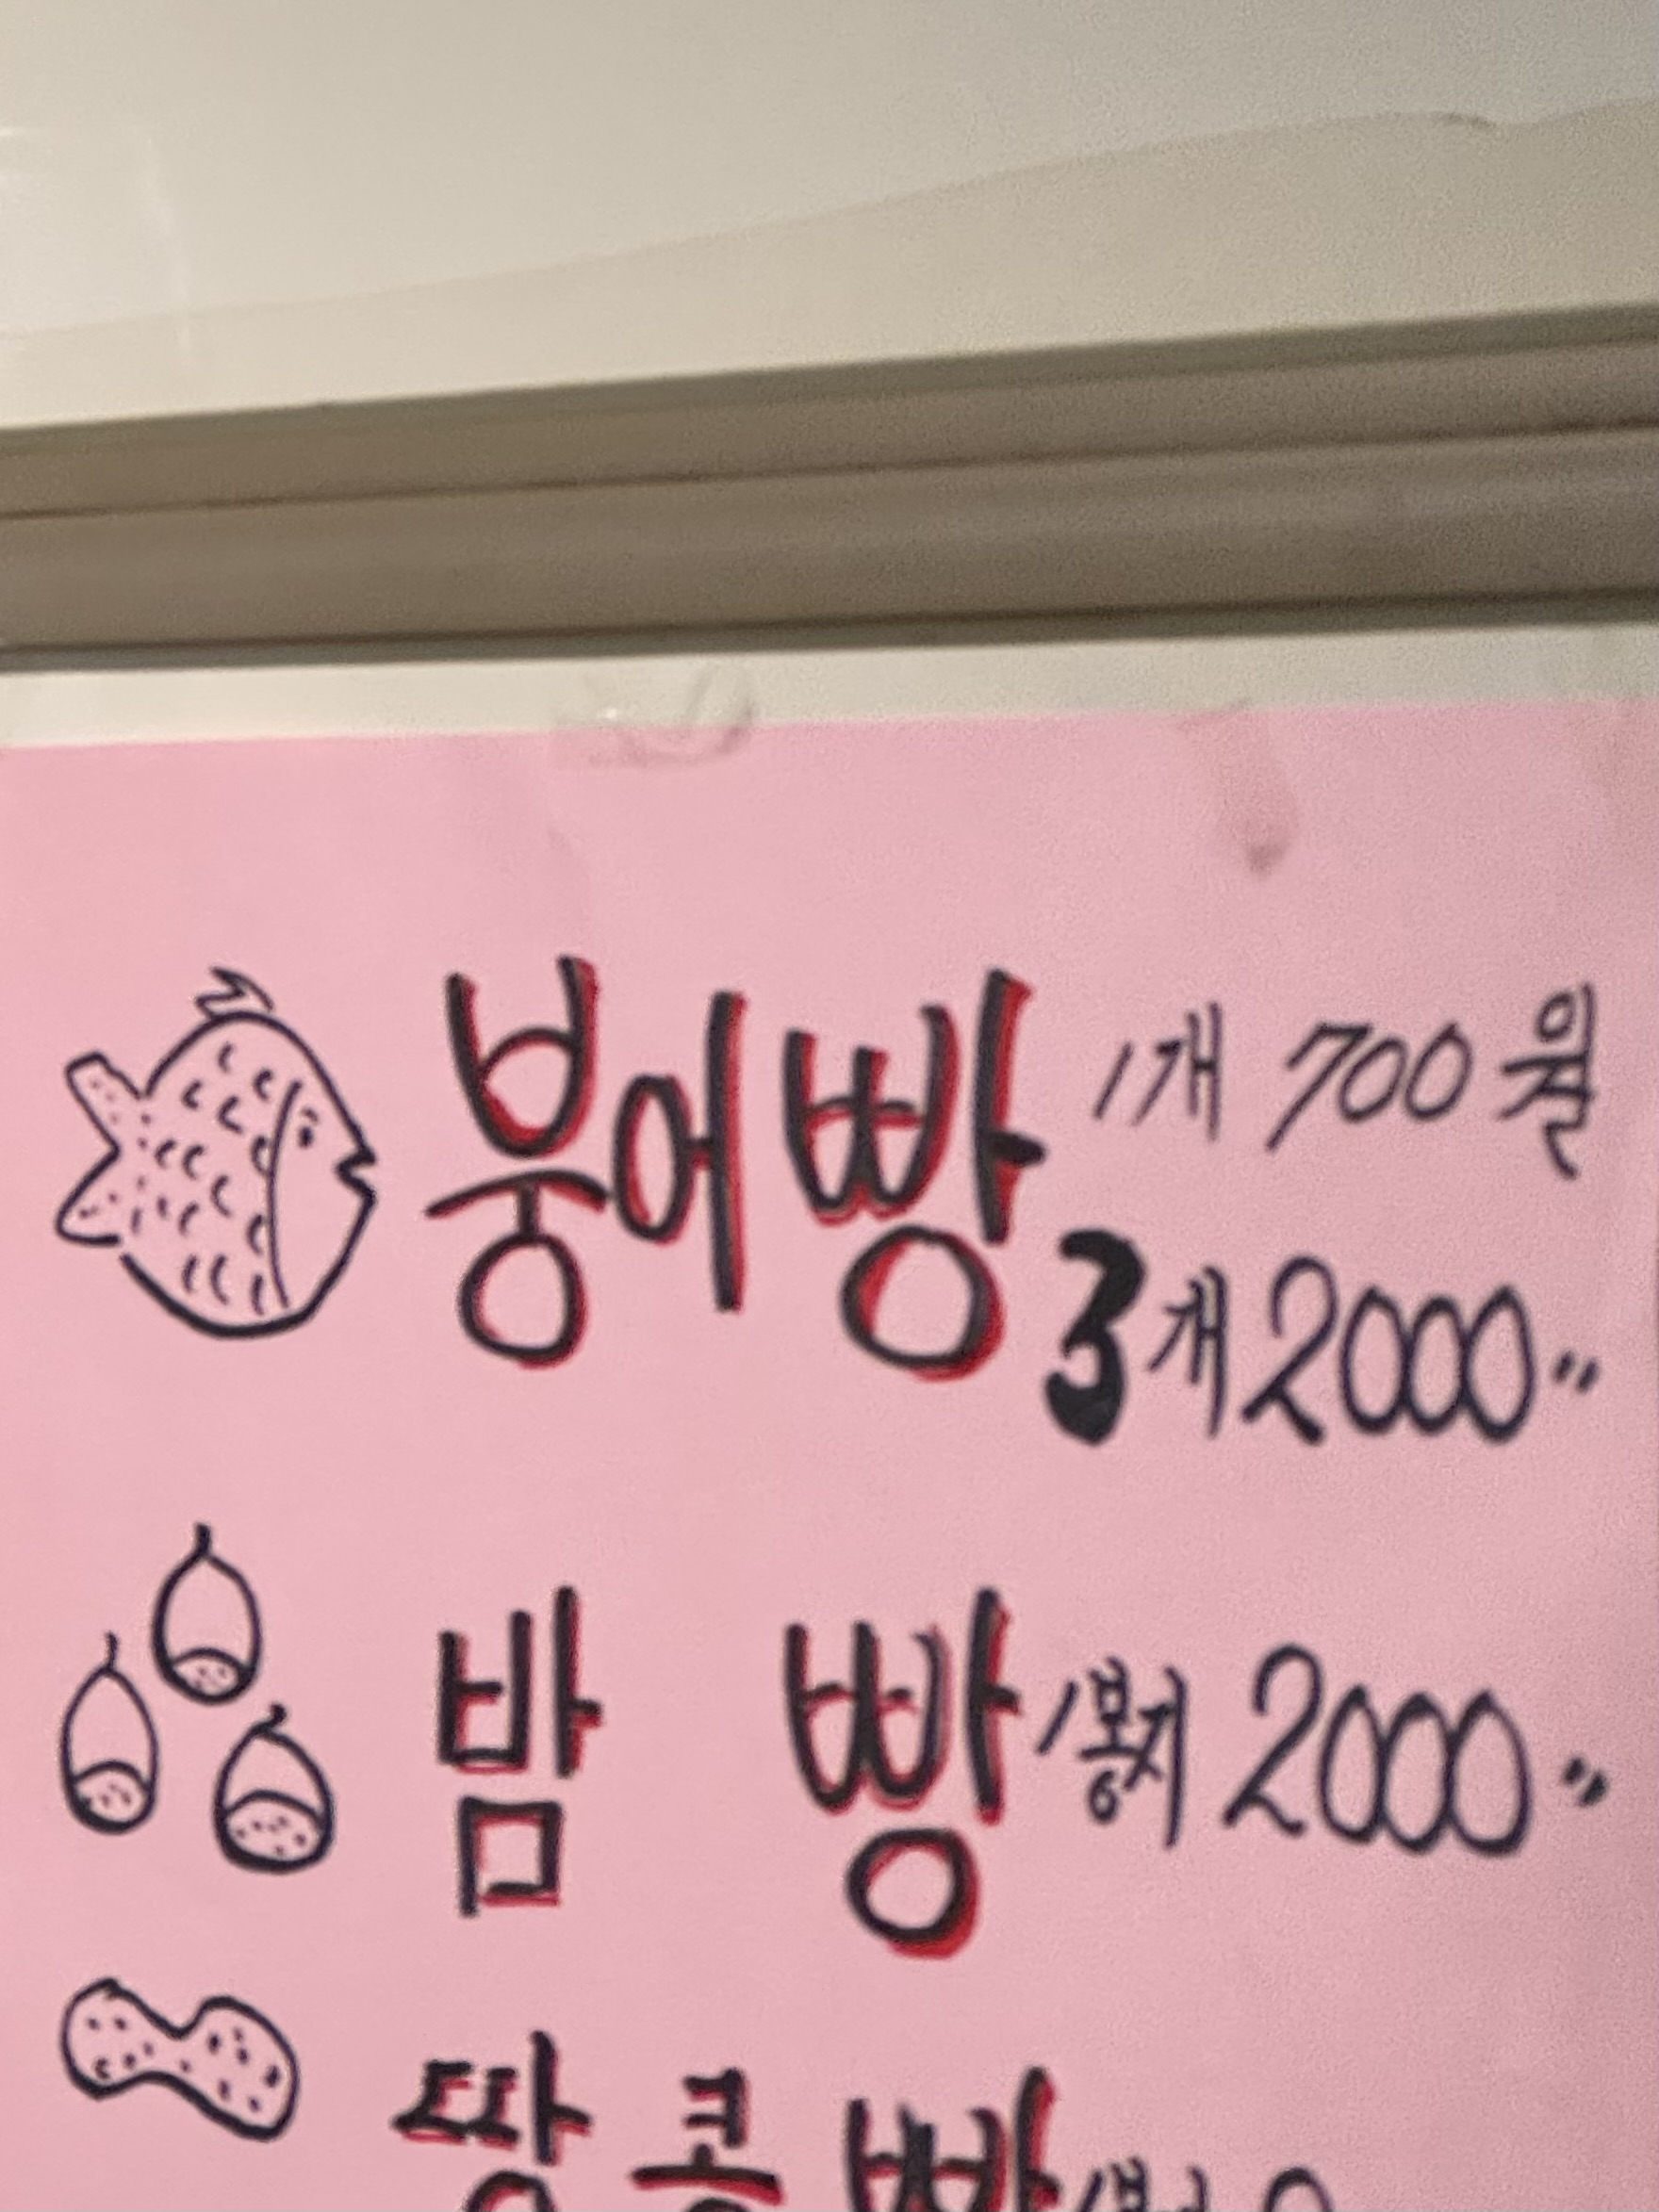 붕어빵 1개 700원
3개 2000〃
밤 빵 1봉지 2000〃
땅콩빵